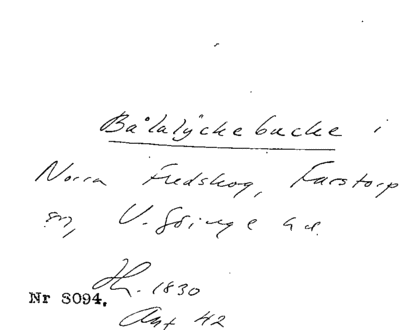 Bålalyckebacke i
Norra Fredskog, Farstorp
sn, V. Göinge hd.
Hl. 1830
Nr 8094.
Ant 42